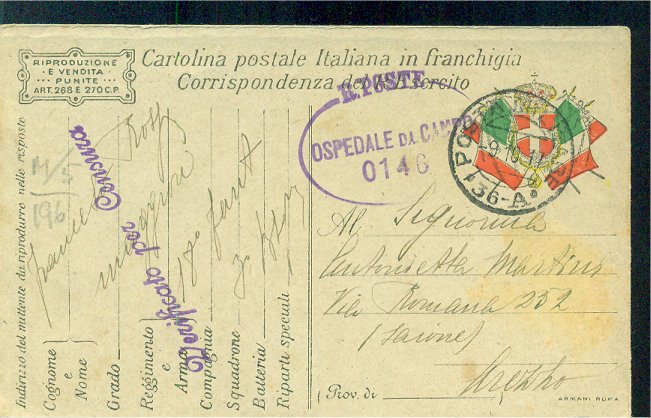 RIPRODUZIONE
E VENDITA
PUNITE
ART. 268 E 270 C.P.
Cartolina postale Italiana in franchigia
Corrispondenza del R. Esercito
R. POSTE
OSPEDALE DA CAMPO
0146
POSTA
9.10.17
36-A
Verificato per Censura
Indirizzo del mittente da riprodurre nelle risposte
Cognome
e
Nome
Grado
Reggimento
e
Arma
Compagnia
Squadrone
Batteria
Riparti speciali
M/5
196
Al Signorina
Antonietta Martini
Via Romana 252
(Saione)
(Prov. di Arezzo
ARMANI ROMA